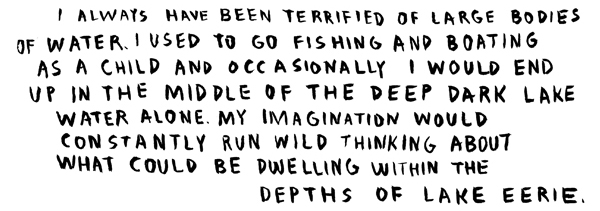 I ALWAYS HAVE BEEN TERRIFIED OF LARGE BODIES
OF WATER. I USED TO GO FISHING AND BOATING
AS A CHILD AND OCCASIONALLY I WOULD END
UP IN THE MIDDLE OF THE DEEP DARK LAKE
WATER ALONE. MY IMAGINATION WOULD
CONSTANTLY RUN WILD THINKING ABOUT
WHAT COULD BE DWELLING WITHIN THE
DEPTHS OF LAKE EERIE.